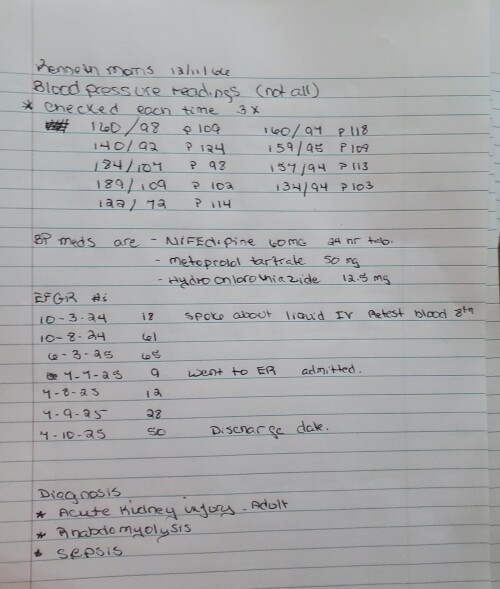 Kenneth Morris 12/11/66
Blood pressure readings (not all)
* Checked each time 3x
160/98 P 109 160/97 P 118
140/92 P 124 159/95 P 109
184/107 P 98 157/94 P 113
189/109 P 102 134/94 P 103
122/72 P 114
BP meds are - NIFEdipine 60mg 24 hr tab.
- metoprolol tartrate 50 mg
- Hydrochlorothiazide 12.5 mg
EFGR #s
10-3-24 18 Spoke about liquid IV Retest blood 8th
10-8-24 61
6-3-25 65
7-7-25 9 went to ER admitted.
7-8-25 12
7-9-25 28
7-10-25 50 Discharge date.
Diagnosis
* Acute Kidney injury - Adult
* Rhabdomyolysis
* Sepsis